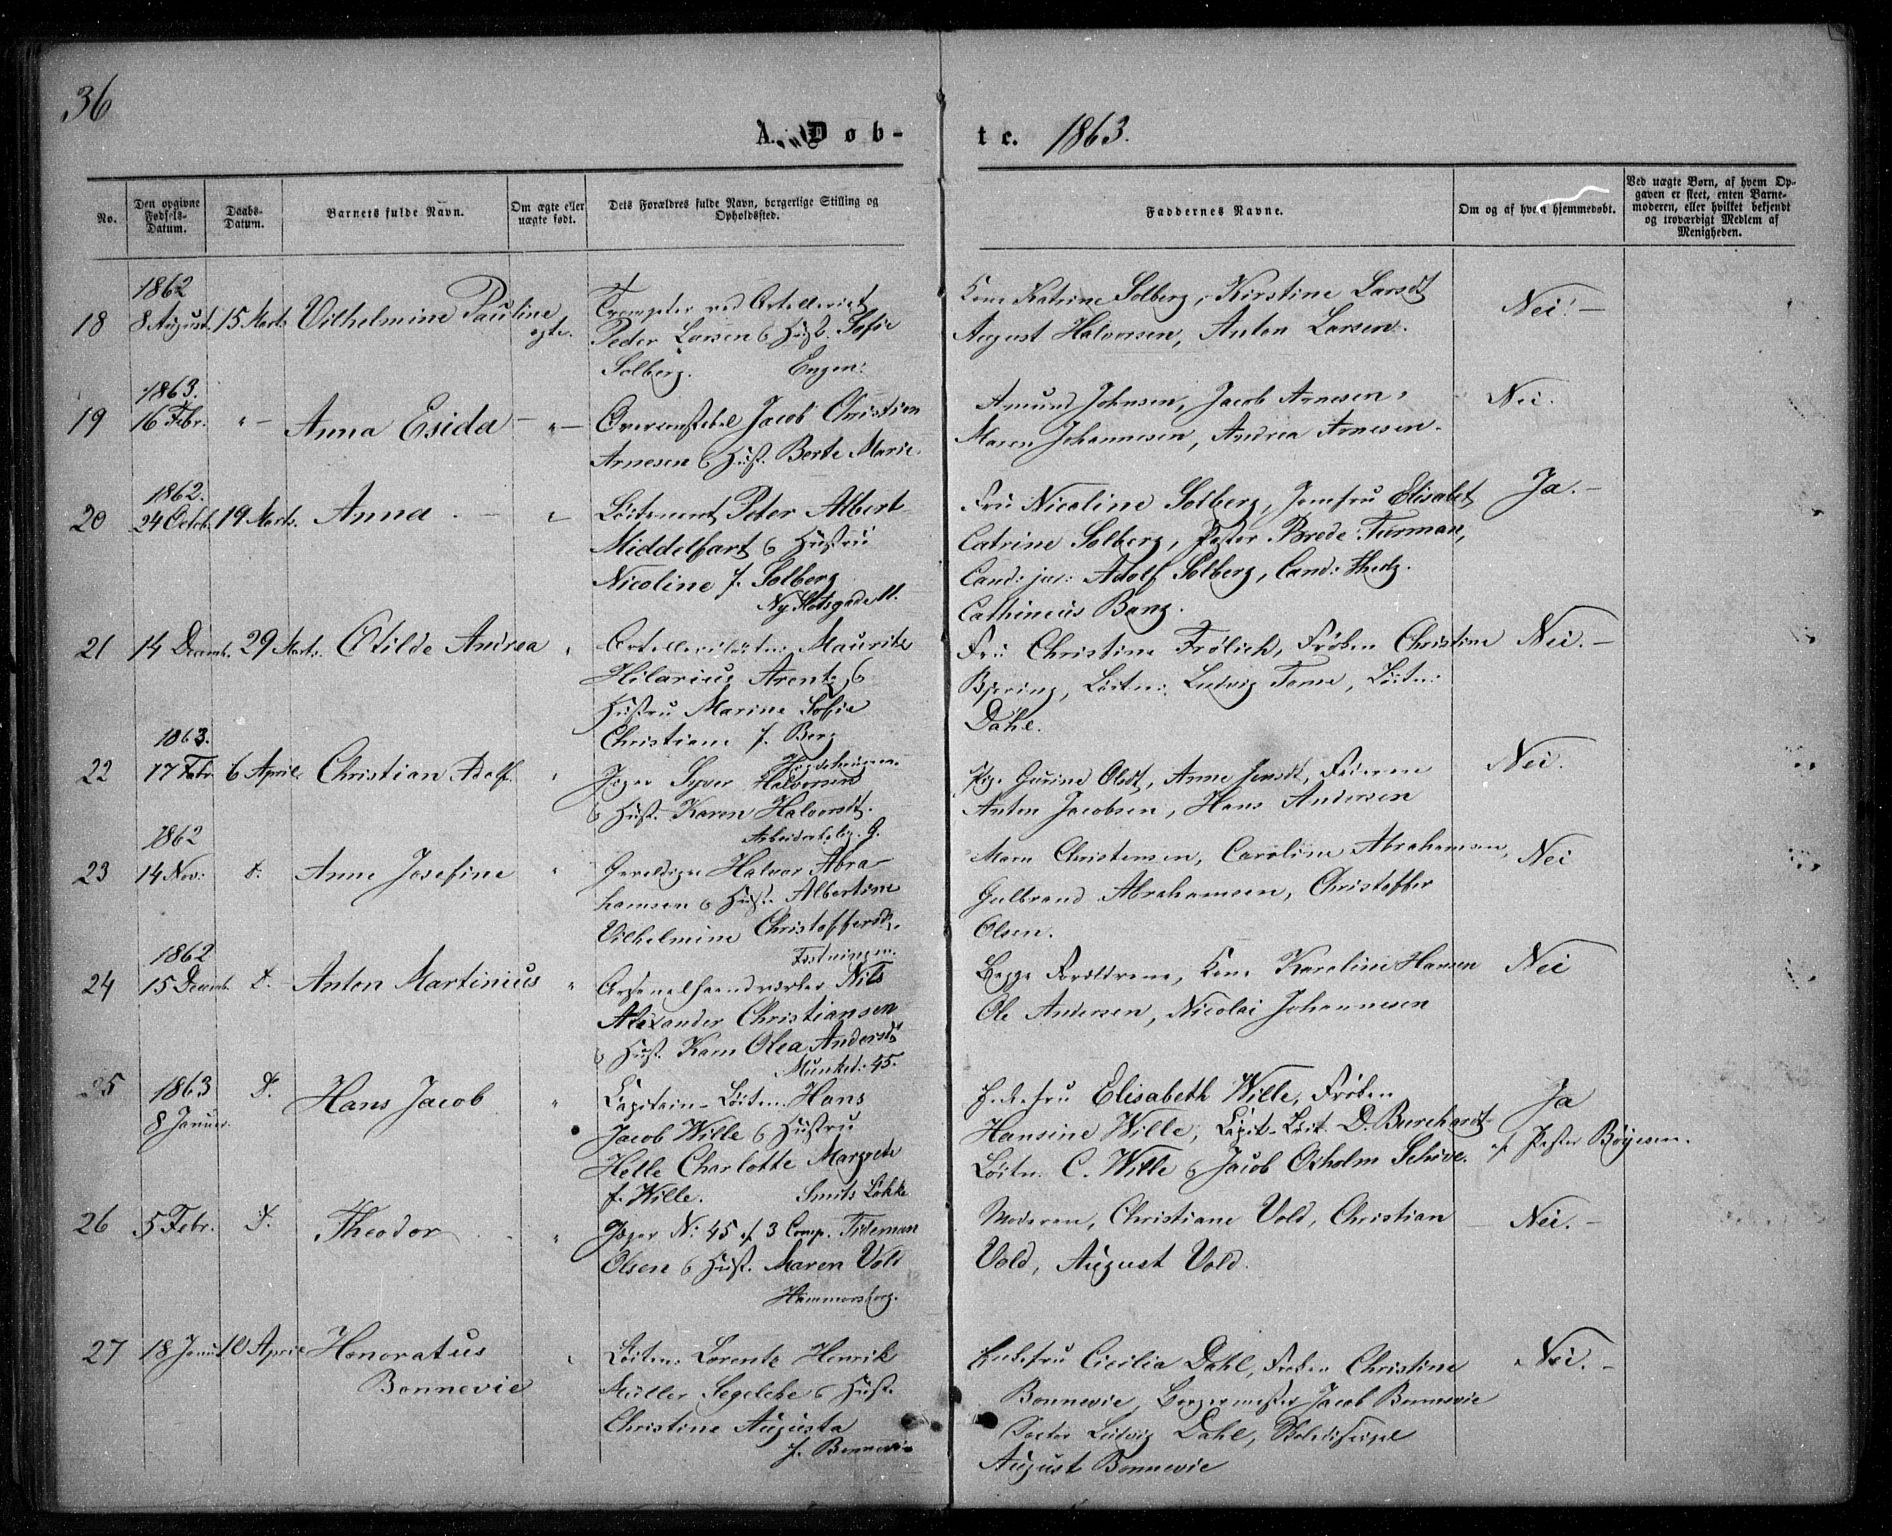 36
A. Døb-
te. 1863.
No.
Den opgivne Fødsels-Datum.
Daabs-Datum.
Barnets fulde Navn.
Om ægte eller uægte født.
Dets Forældres fulde Navn, borgerlige Stilling og Opholdssted.
Faddernes Navne.
Om og af hvem hjemmedøbt.
Ved uægte Børn, af hvem Opgaven er skeet, enten Barnemoderen, eller hvilket bekjendt og troværdigt Medlem af Menigheden.
1862
18 8 August 15 Marts Vilhelmine Pauline egte.
Trompeter ved Artelleriet
Peder Larsen & Hust. Sofie
Solberg. Engen.
Kone Katrine Solberg, Kirstine Larsdt
August Halvorsen, Anton Larsen.
Nei! -
1863.
19 16 Febr. " - Anna Esida - " -
Jacob Christian
Arnesen & Hust. Berte Marie.
Amund Johnsen, Jacob Arnesen,
Maren Johannesen, Andrea Arnesen.
Nei.
1862.
20 24 Octob. 19 Marts. Anna "
Løitenant Peter Albert
Middelfart & Hustru
Nicoline f. Solberg
Ny Slotsgade 11.
Fru Nicoline Solberg, Jomfru Elisabet
Catrine Solberg, Pastor Brede Turman,
Cand: jur: Adolf Solberg, Cand: Theolg.
Cathineus Bang.
Ja. -
21 14 Decemb. 29 Marts. Otilde Andrea "
Artelleriløitn: Mauritz
Hilarius Arentz &
Hustru Marine Sofie
Christiane f. Berg
Fru Christine Frølich, Frøken Christine
Bjerring, Løitn: Ludvig Tome, Løitn:
Dahl.
Nei. -
1863.
22 17 Febr 6 April Christian Adolf. "
Jæger Syver Halvorsen
& Hust. Karen Halvorsdt.
Pige Gurine Olsdt, Anne Jensdt, Faderen
Anton Jacobsen, Hans Andersen
Nei.
1862
Arbeiderbolig. G.
23 14 Nov: D. Anne Josefine "
Halvor Abra-
hamsen & Hust. Albertine
Vilhelmine Christoffersdt.
Fæstningen.
Maren Christensen, Caroline Abrahamsen,
Gulbrand Abrahamsen, Christoffer
Olsen.
Nei
1862
24 15 Decemb. D. Anton Martinius "
Arsenalhaandværker Nils
Alexander Christiansen
& Hust. Karen Olea Andersdt
Munked: 45.
Begge Forældrene, Kone Karoline Hansen
Ole Andersen, Nicolai Johannesen
Nei
25 1863
8 Januar. D. Hans Jacob "
Capitain-Løitn. Hans
Jacob Wille & Hustru
Helle Charlotte Margrete
f. Wille. Smits Løkke
Enkefru Elisabeth Wille, Frøken
Hansine Wille, Capit-Løit. D. Burchardt
Løitn. C. Wille & Jacob Oxholm Schive.
Ja
af Pastor Bøyesen.
26 5 Febr. D. Theodor "
Jæger No: 45 af 3 Comp. Tideman
Olsen & Hust. Maren Vold
Hammersborg.
Moderen, Christiane Vold, Christian
Vold, August Vold.
Nei. -
27 18 Januar 10 April Honoratus
Bonnevie "
Løitn: Lorentz Henrik
Müller Segelcke & Hust.
Christine Augusta
f. Bonnevie
Enkefru Cicilia Dahl, Frøken Christine
Bonnevie, Borgermester Jacob Bonnevie
Doctor Ludvig Dahl, Skoledisciple
August Bonnevie
Nei. -